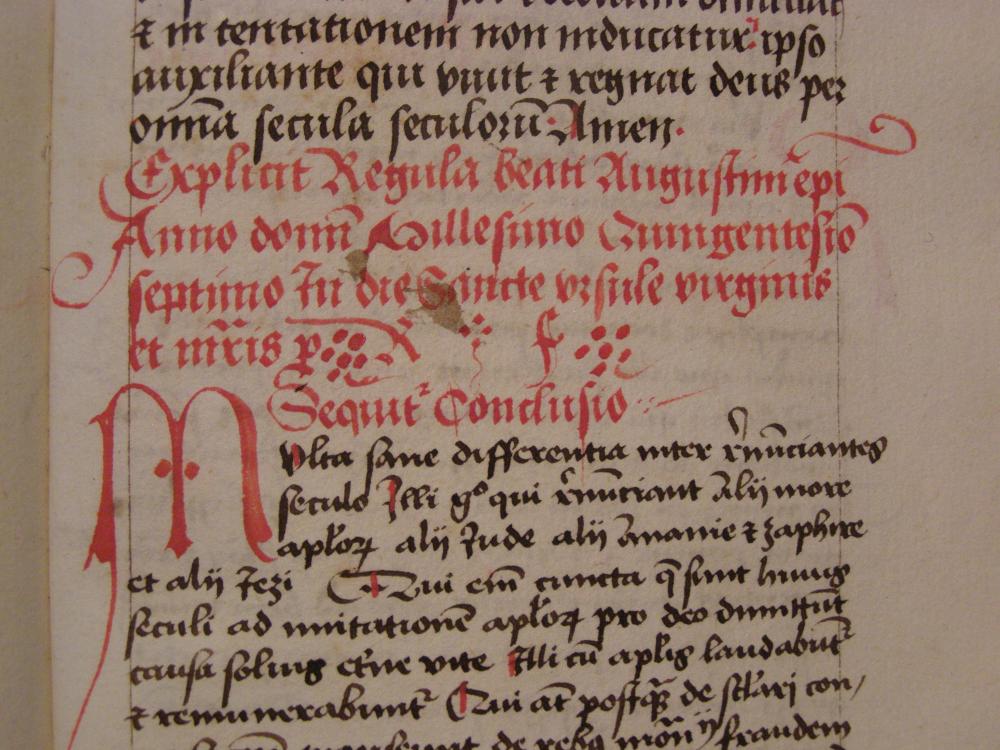 & in tentationem non inducatur ipso
auxiliante qui viuit & regnat deus per
om̄ia secula seculorū Amen.
Explicit Regula beati Augustini ēpi
Anno domī Millesimo Quingentesīo
septimo In die Sancte vrsule virginis
et mr̄is p R F
Sequit᷑ Conclusio
Multa sane differentia inter r̄nūciantes
seculo Illi gͦ qui r̄nūciant Alij more
apl̄oꝝ alij Jude alij Ananie & zaphire
et alij Jezi Qui em̄ cuncta q̄ sunt huiuꝰ
seculi ad imitationē apl̄oꝝ pro deo dimittūt
causa soliuꝰ et̄ne vite Illi cū apl̄is laudabūt᷑
& remunerabunt᷑ Qui at̄ postꝙ̄ de sc̄lari con,
de rebꝰ fraudem